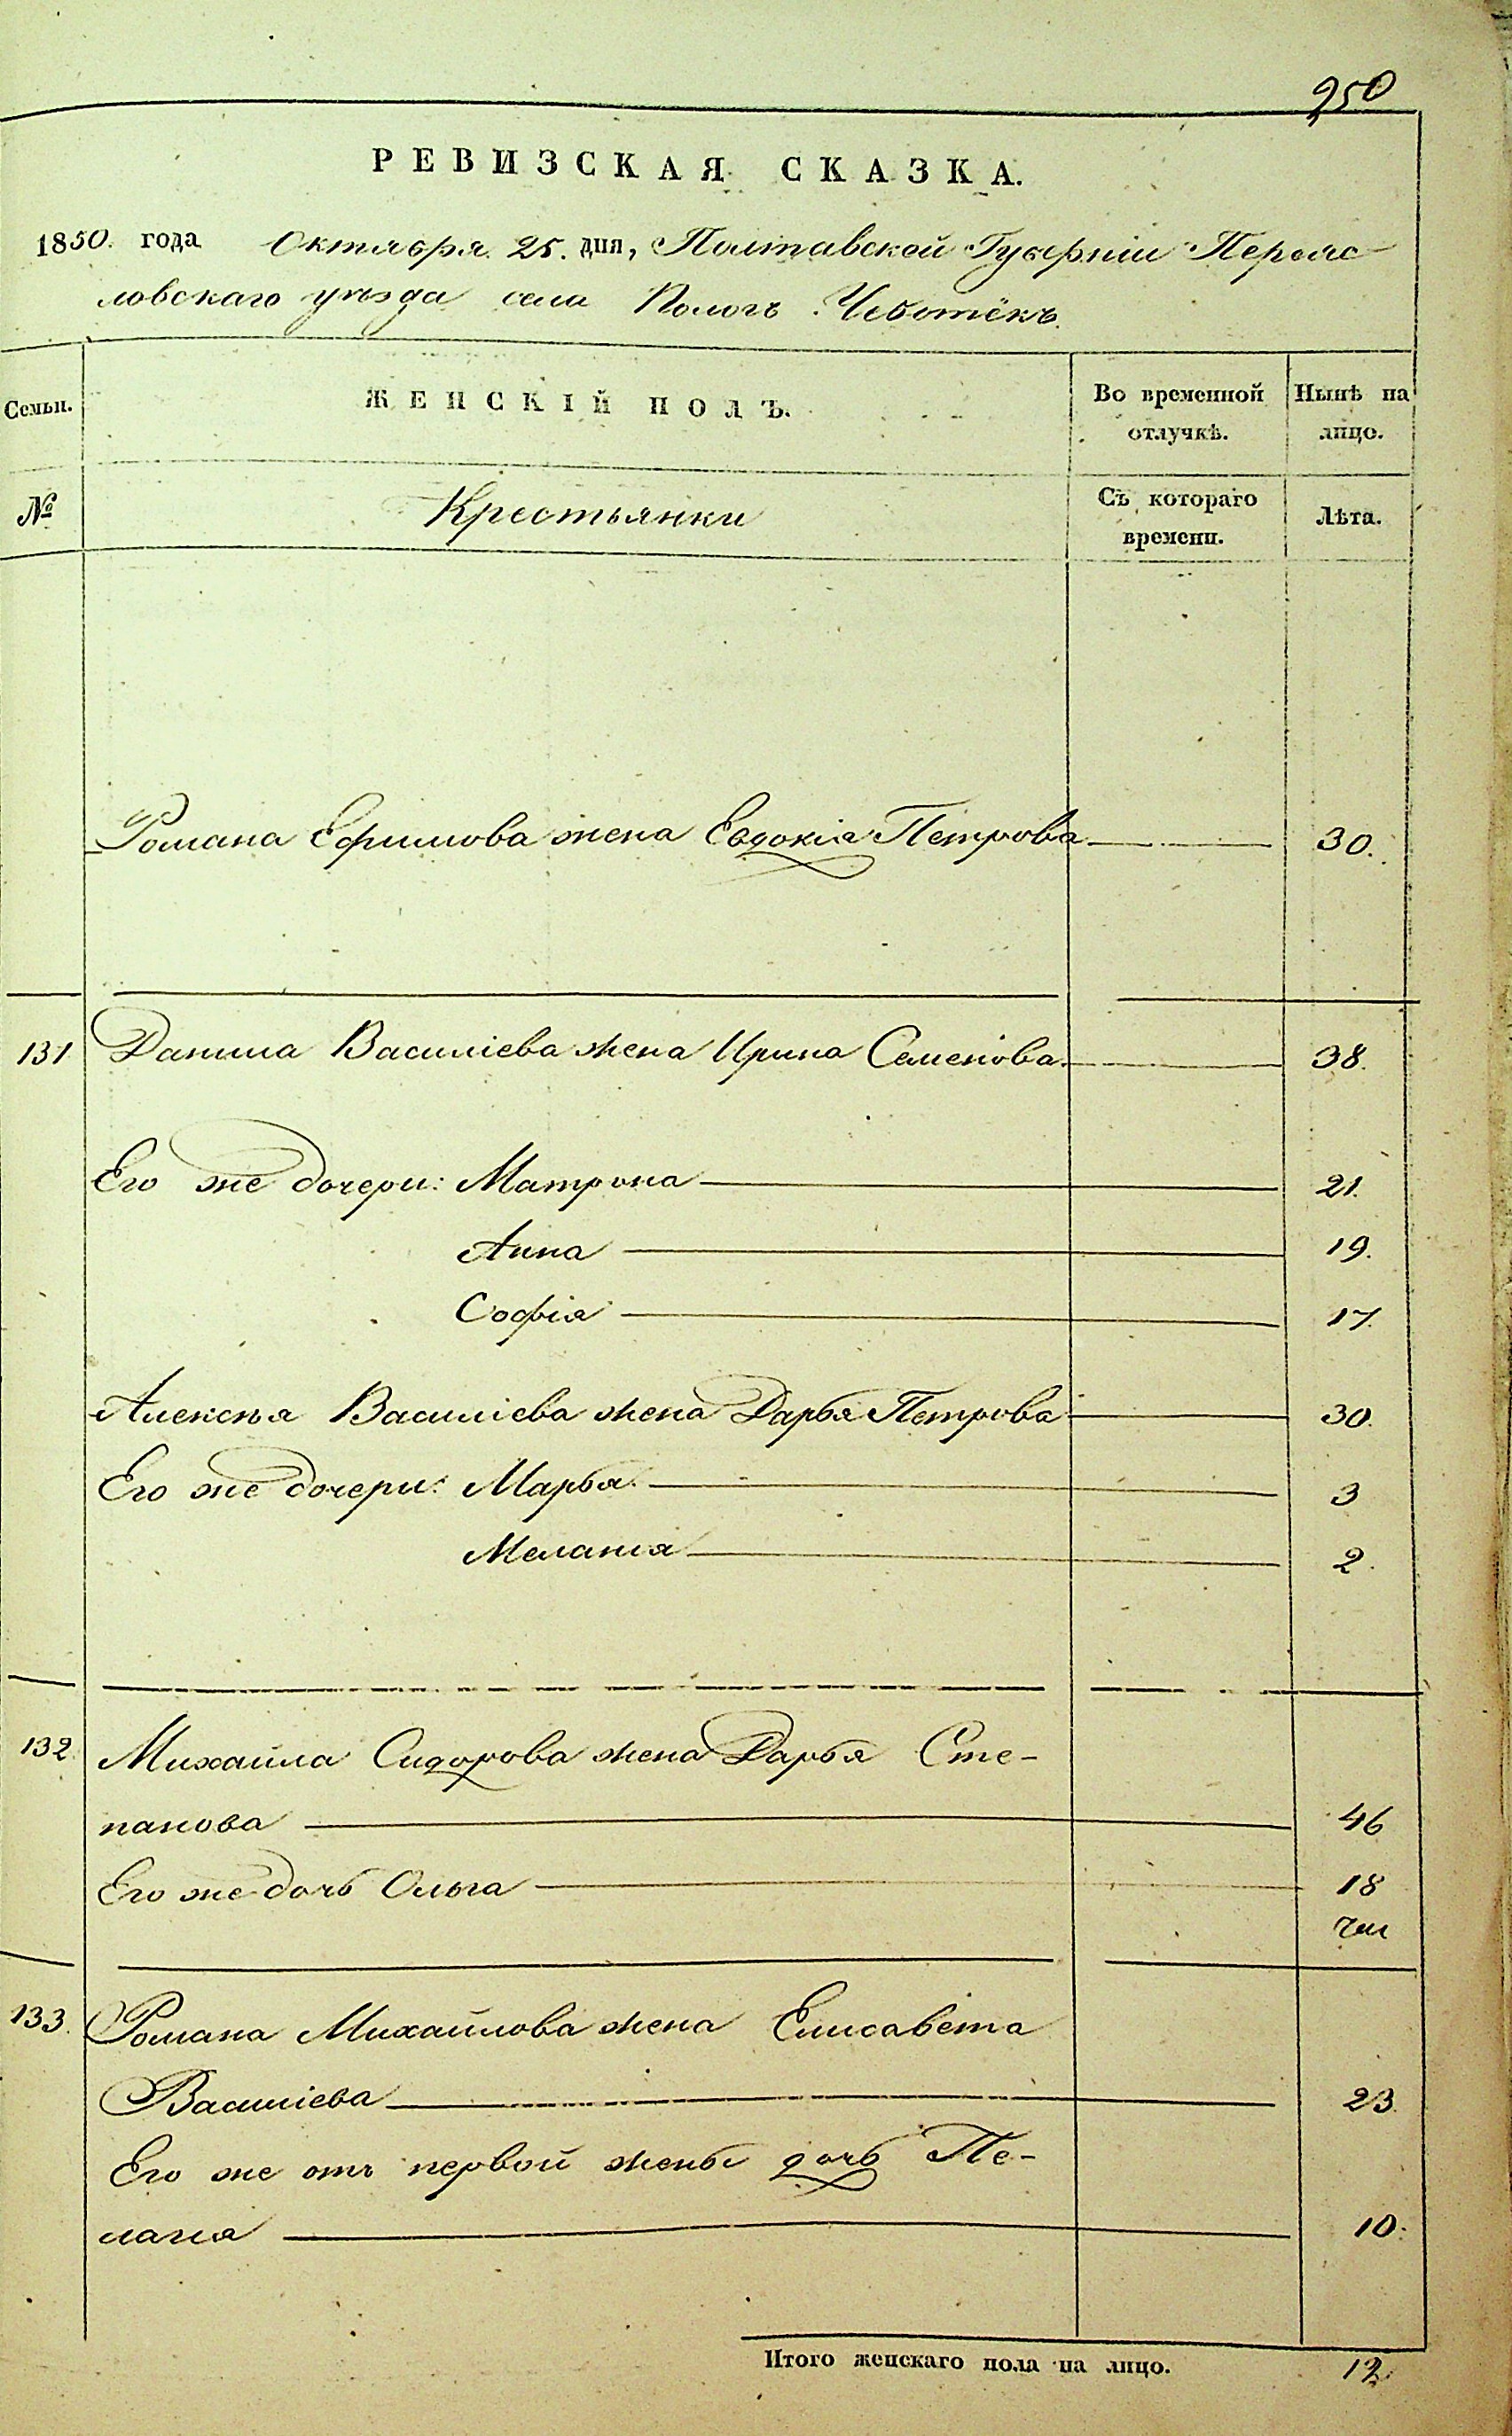 950
РЕВИЗСКАЯ СКАЗКА.
1850. года Октября 25. дня, Полтавской Губерніи Переяс-
ловскаго уѣзда села Пологъ Чеботёкъ.
Семьи.
ЖЕНСКІЙ ПОЛЪ.
Во временной отлучкѣ.
Нынѣ на лицо.
№
Крестьянки
Съ котораго времени.
Лѣта.
Романа Ефимова жена Евдокія Петрова 30.
131 Данила Василіева жена Ирина Семенова 38.
Его же дочери: Матрона 21.
Анна 19.
Софія 17.
Алексѣя Василіева жена Дарья Петрова 30.
Его же дочери: Марья 3
Меланія 2.
132 Михайла Сидорова жена Дарья Сте-
панова 46
Его же дочь Ольга 18
133. Романа Михайлова жена Елисавета
Василіева 23.
Его же отъ первой жены дочь Пе-
лагія 10.
Итого женскаго пола на лицо. 12